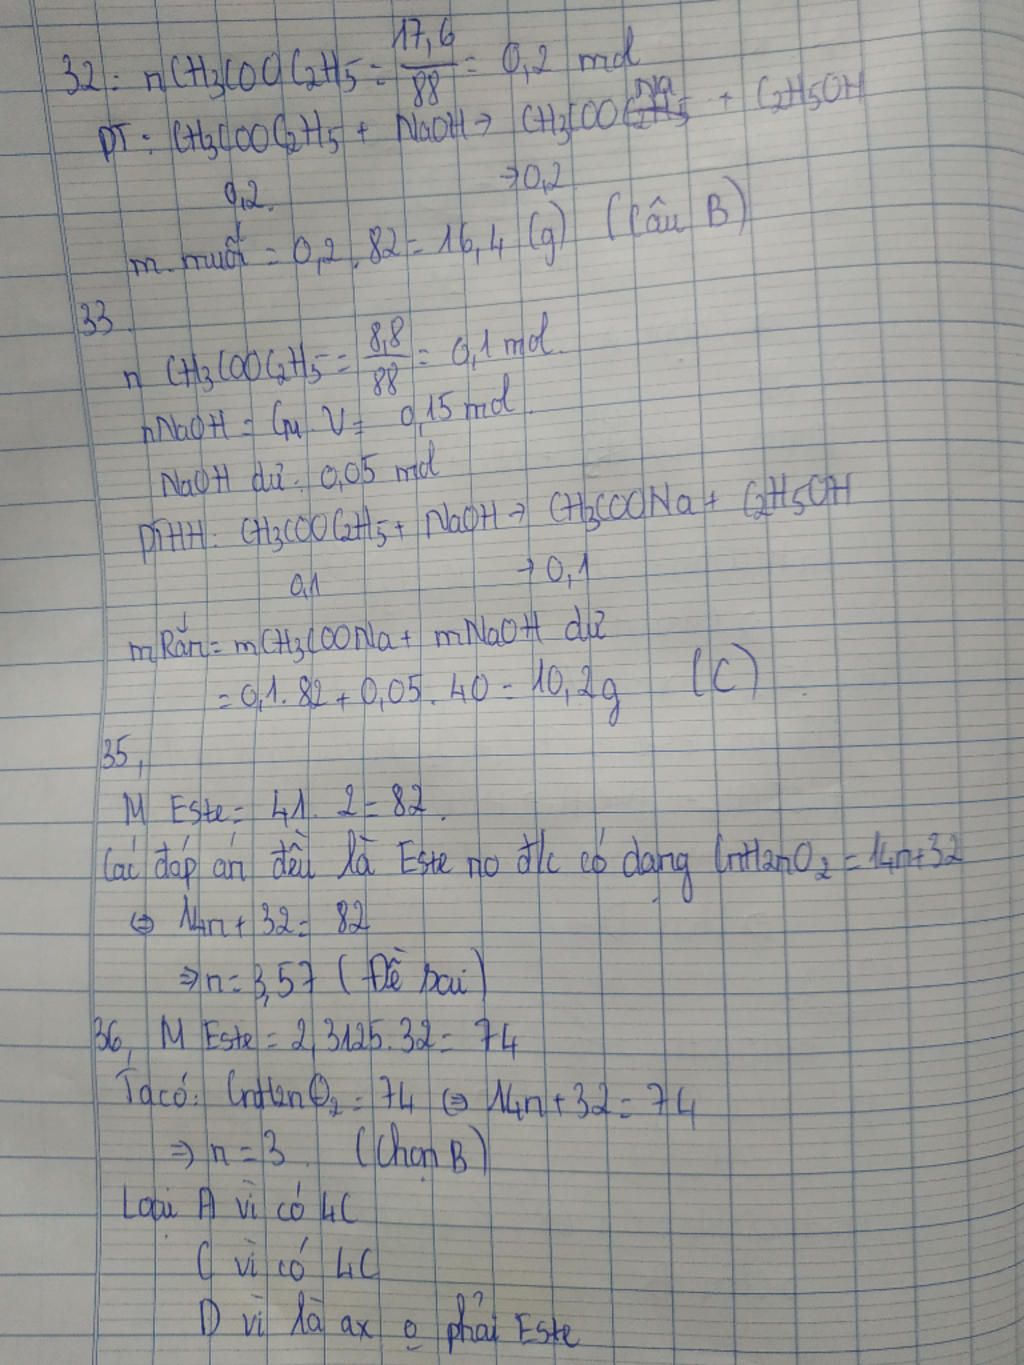 32: nCH3COOC2H5 = 17,6/88 = 0,2 mol
PT: CH3COOC2H5 + NaOH → CH3COONa + C2H5OH
0,2. → 0,2
m muối = 0,2 . 82 = 16,4 (g) (Câu B)
33.
n CH3COOC2H5 = 8,8/88 = 0,1 mol.
nNaOH = CM . V = 0,15 mol.
NaOH dư: 0,05 mol
PTHH: CH3COOC2H5 + NaOH → CH3COONa + C2H5OH
0,1 → 0,1
m Rắn = mCH3COONa + mNaOH dư
= 0,1 . 82 + 0,05 . 40 = 10,2g (C)
35,
M Este = 41 . 2 = 82.
Các đáp án đều là Este no đ/c có dạng CnH2nO2 = 14n+32
⇔ 14n + 32 = 82
⇒ n = 3,57 (Đề sai)
36, M Este = 2,3125.32 = 74
Ta có: CnH2nO2 = 74 ⇔ 14n+32 = 74
⇒ n = 3. (Chọn B)
Loại A vì có 4C
C vì có 4C
D vì là ax o phải Este